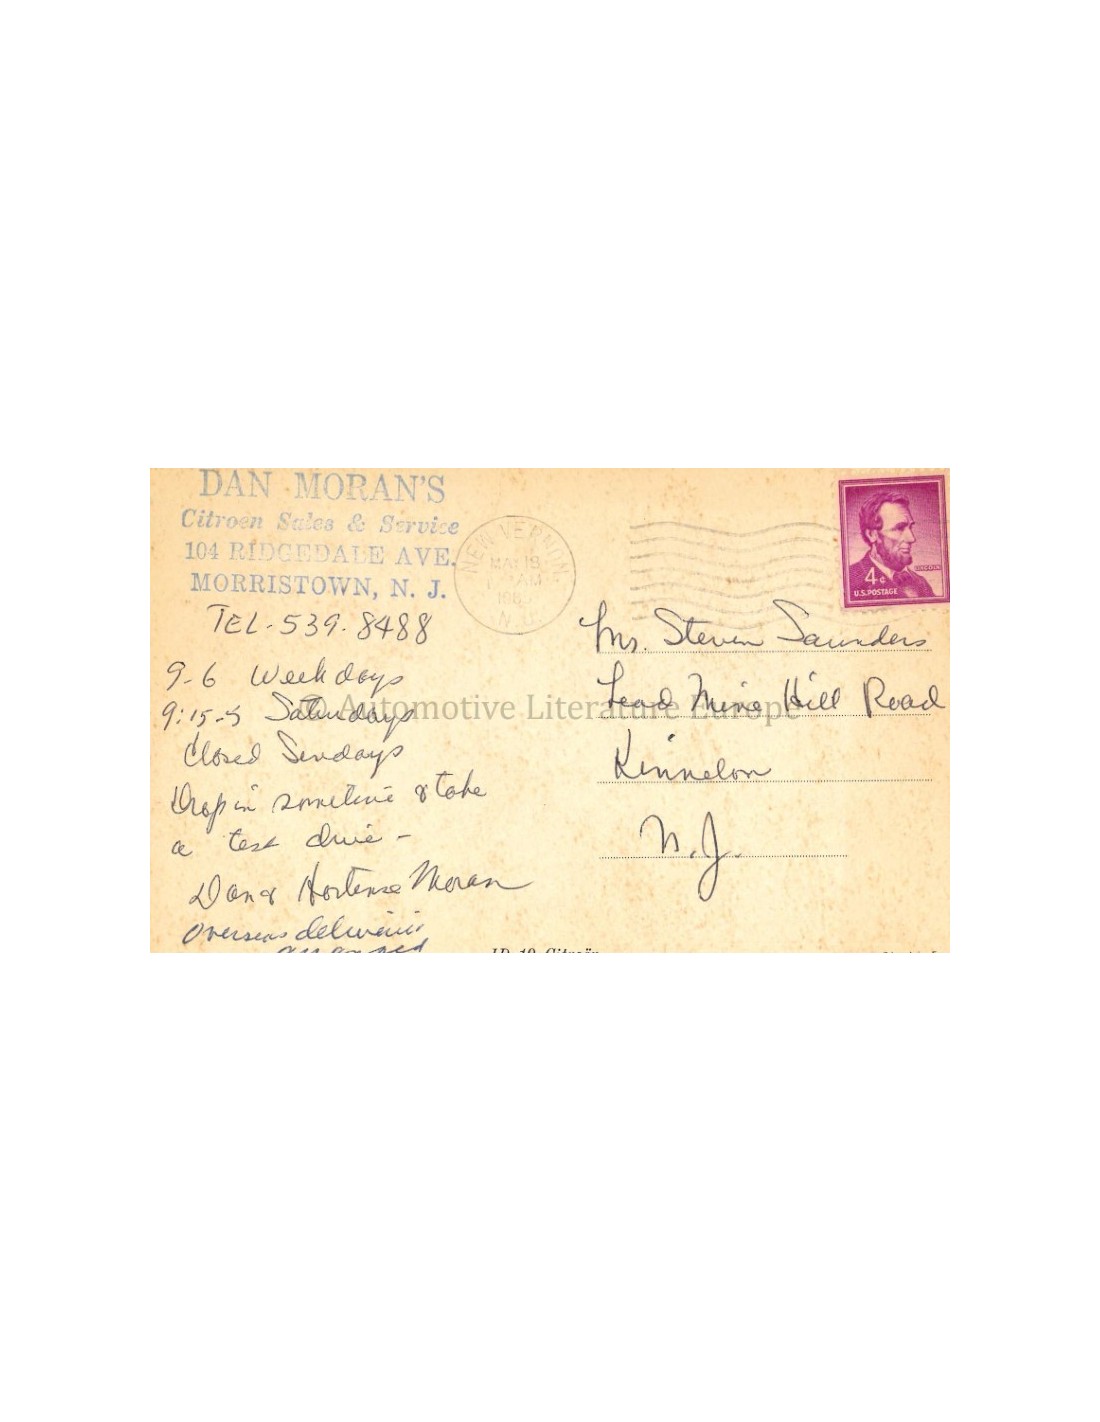 DAN MORAN'S
Citroen Sales & Service
104 RIDGEDALE AVE.
MORRISTOWN, N. J.
TEL. 539.8488
9-6 Weekdays
9:15-5 Saturdays
Closed Sundays
Drop in sometime & take
a test drive -
Dan & Hortense Moran
Overseas deliveries
arranged
NEW VERNON
MAY 19
AM
N.J.
4¢
U.S. POSTAGE
LINCOLN
Mr. Steven Saunders
Lead Mine Hill Road
Kinnelon
N.J.
© Automotive Literature Europe
ID 19 Citroën